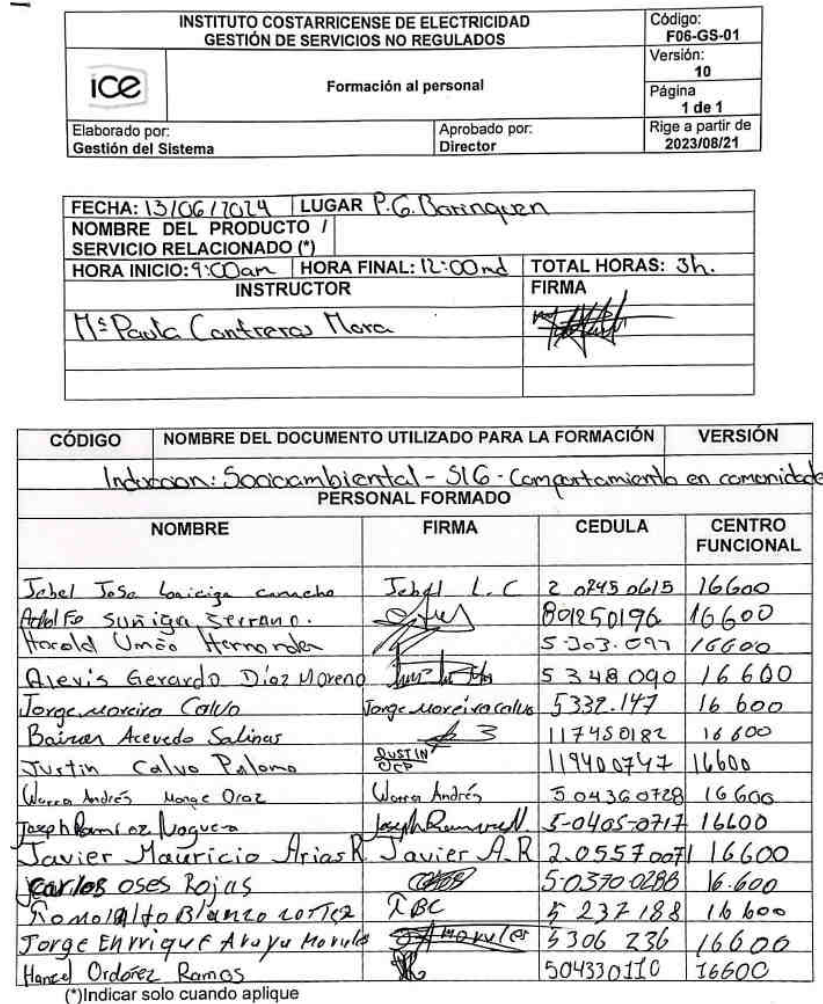 INSTITUTO COSTARRICENSE DE ELECTRICIDAD
GESTIÓN DE SERVICIOS NO REGULADOS
Código:
F06-GS-01
ice
Formación al personal
Versión:
10
Página
1 de 1
Elaborado por:
Gestión del Sistema
Aprobado por:
Director
Rige a partir de
2023/08/21
FECHA: 13/06/2024 LUGAR P.G. Borinquen
NOMBRE DEL PRODUCTO /
SERVICIO RELACIONADO (*)
HORA INICIO: 9:00am HORA FINAL: 12:00md TOTAL HORAS: 3h.
INSTRUCTOR FIRMA
Mª Paula Contreras Mora
CÓDIGO NOMBRE DEL DOCUMENTO UTILIZADO PARA LA FORMACIÓN VERSIÓN
Induccion: Socioambiental - SIG - Comportamiento en comunidade
PERSONAL FORMADO
NOMBRE FIRMA CEDULA CENTRO
FUNCIONAL
Jebel Jose Loaiciga camacho Jebel L. C 2 0745 0615 16600
Adolfo Suñiga Serrano. 801250196 16600
Harold Umaña Hernandez 5-303-097 16600
Alevis Gerardo Díaz Moreno 5 348 090 16 600
Jorge Moreira Calvo Jorge Moreira calvo 5332.147 16 600
Acevedo Salinas 117450182 16 600
Justin Calvo Palomo JUSTIN 119400747 16600
Andrés Monge Díaz Andrés 5 0436 0728 16600
Joseph Ramirez Noguera Joseph Ramirez N. 5-0405-0717 16600
Javier Mauricio Arias R Javier A.R 2.0557 0071 16600
Carlos Oses Rojas 5-0370-0288 16.600
Blanco Cortez RBC 5 237 188 16 600
Jorge Enrrique Araya Morales 5306 236 16600
Ordoñez Ramos 504330110 16600
(*)Indicar solo cuando aplique